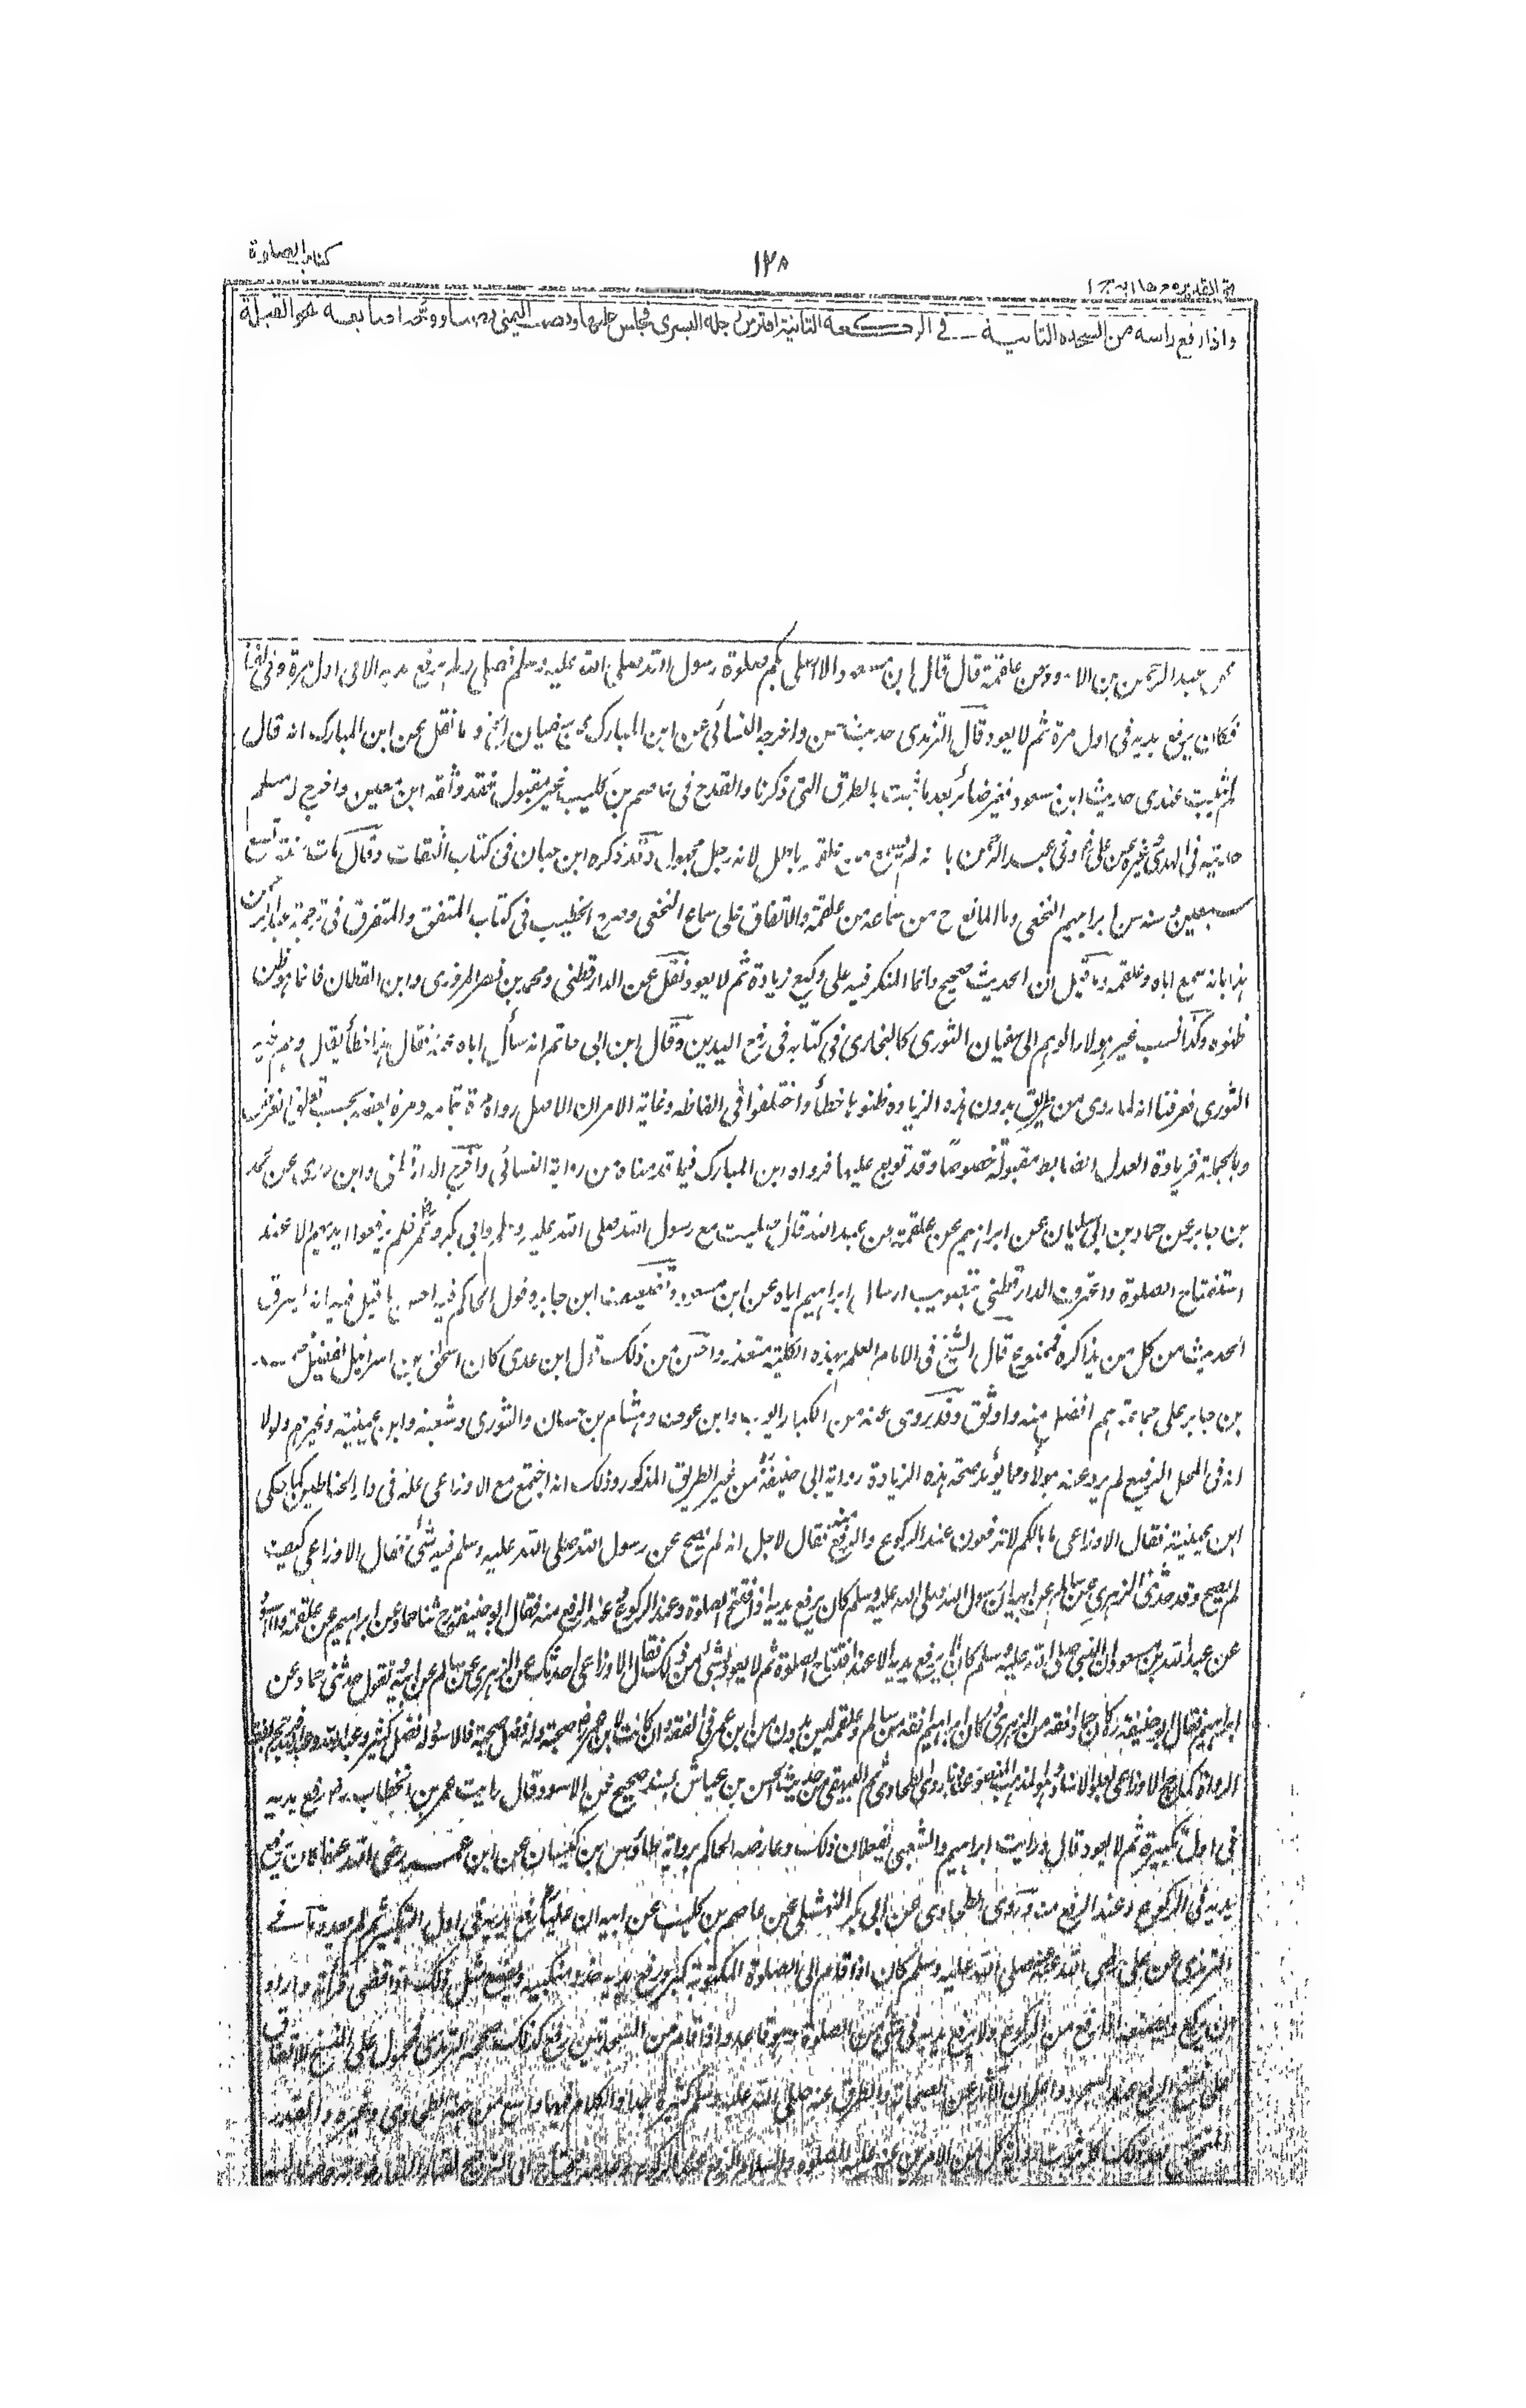 كتاب الصلوة
١٢٨
فتح القدير مع هدايه ج ١
واذا رفع راسه من السجدة الثانية في الركعة الثانية افترش رجله اليسرى فجلس عليها ونصب اليمنى نصبا ووجه اصابعه نحو القبلة
عن عبد الرحمن بن الاسود عن علقمة قال قال ابن مسعود الا اصلى بكم صلوة رسول الله صلى الله عليه وسلم فصلى ولم يرفع يديه الا فى اول مرة وفى لفظ
فكان يرفع يديه فى اول مرة ثم لا يعود قال الترمذى حديث حسن واخرجه النسائى عن ابن المبارك عن سفيان الخ وما نقل عن ابن المبارك انه قال
لم يثبت عندى حديث ابن مسعود فغير ضائر بعد ما ثبت بالطرق التى ذكرنا والقدح فى عاصم بن كليب غير مقبول فقد وثقه ابن معين واخرج له مسلم
حديثه فى الهدى وغيره عن على وفى عبد الرحمن بانه لم يسمع من علقمة باطل لانه رجل مجهول وقد ذكره ابن حبان فى كتاب الثقات وقال مات سنة تسع
وتسعين وسنه سن ابراهيم النخعى وما المانع ح من سماعه من علقمة والاتفاق على سماع النخعى وصرح الخطيب فى كتاب المتفق والمتفرق فى ترجمة عبد الرحمن
هذا بانه سمع اباه وعلقمة وما قيل ان الحديث صحيح وانما المنكر فيه على وكيع زيادة ثم لا يعود نقل عن الدارقطنى ومحمد بن نصر المروزى وابن القطان فانما هو ظن
ظنوه وكذا نسب غير هؤلاء الوهم الى سفيان الثورى كالبخارى فى كتابه فى رفع اليدين وقال ابن ابى حاتم انه سأل اباه عنه فقال هذا خطأ يقال وهم فيه
الثورى فعرفنا انه لما روى من طريق بدون هذه الزيادة ظنوها خطأ واختلفوا فى الغالط وغاية الامر ان الاصل رواه مرة بتمامه ومرة بعضه بحسب تعلق الغرض
وبالجملة فزيادة العدل الضابط مقبولة خصوصًا وقد توبع عليها فرواه ابن المبارك فيما قدمناه من رواية النسائى واخرج الدارقطنى وابن عدى عن محمد
بن جابر عن حماد بن ابى سليمان عن ابراهيم عن علقمة عن عبد الله قال صليت مع رسول الله صلى الله عليه وسلم وابى بكر وعمر فلم يرفعوا ايديهم الا عند
استفتاح الصلوة واعترف الدارقطنى بتصويب ارسال ابراهيم اياه عن ابن مسعود وتضعيف ابن جابر وقول الحاكم فيه احسن ما قيل فيه انه يسرق
الحديث من كل من يذاكره فممنوع قال الشيخ فى الامام العلم بهذه الكلية متعذر واحسن من ذلك قول ابن عدى كان اسحق بن اسرائيل يفضل محمد
بن جابر على جماعة هم افضل منه واوثق وقد روى عنه من الكبار ايوب وابن عون وهشام بن حسان والثورى وشعبة وابن عيينة وغيرهم ولولا
انه فى المحل الرفيع لم يرو عنه هؤلاء ومما يؤيد صحة هذه الزيادة رواية ابى حنيفة من غير الطريق المذكور وذلك انه اجتمع مع الاوزاعى بمكة فى دار الحناطين كما حكى
ابن عيينة فقال الاوزاعى ما بالكم لا ترفعون عند الركوع والرفع منه فقال لاجل انه لم يصح عن رسول الله صلى الله عليه وسلم فيه شئ فقال الاوزاعى كيف
لم يصح وقد حدثنى الزهرى عن سالم عن ابيه ان رسول الله صلى الله عليه وسلم كان يرفع يديه اذا افتتح الصلوة وعند الركوع وعند الرفع منه فقال ابو حنيفة ح ثنا حماد عن ابراهيم عن علقمة والاسود
عن عبد الله بن مسعود ان النبى صلى الله عليه وسلم كان لا يرفع يديه الا عند افتتاح الصلوة ثم لا يعود لشئ من ذلك فقال الاوزاعى احدثك عن الزهرى عن سالم عن ابيه وتقول حدثنى حماد عن
ابراهيم فقال ابو حنيفة كان حماد افقه من الزهرى وكان ابراهيم افقه من سالم وعلقمة ليس بدون من ابن عمر فى الفقه وان كانت لابن عمر صحبة وله فضل صحبة فالاسود له فضل كثير وعبد الله عبد الله فرجح بفقه
الرواة كما رجح الاوزاعى بعلو الاسناد وهو المذهب المنصور عندنا وروى الطحاوى ثم البيهقى من حديث الحسن بن عياش بسند صحيح عن الاسود قال رايت عمر بن الخطاب رض رفع يديه
فى اول تكبيرة ثم لا يعود قال ورايت ابراهيم والشعبى يفعلان ذلك وعارضه الحاكم برواية طاؤس بن كيسان عن ابن عمر رضى الله عنهما كان يرفع
يديه فى الركوع وعند الرفع منه وروى الطحاوى عن ابى بكر النهشلى عن عاصم بن كليب عن ابيه ان عليا رفع يديه فى اول التكبير ثم لم يعد وما فى
الترمذى عن على رضى الله عنه صلى الله عليه وسلم كان اذا قام الى الصلوة المكتوبة كبر ورفع يديه حذو منكبيه ويصنع مثل ذلك اذا قضى قرأته واراد
ان يركع ويصنعه اذا رفع من الركوع ولا يرفع يديه فى شئ من الصلوة وهو قاعد واذا قام من السجدتين رفع كذلك صححه الترمذى فمحمول على النسخ للاتفاق
على نسخ الرفع عند السجود واعلم ان الآثار عن الصحابة والطرق عنه صلى الله عليه وسلم كثيرة جدا والكلام فيها واسع من جهة الطحاوى وغيره والقدر
المتحقق بعد ذلك كله ثبوت رواية كل من الامرين عنه عليه الصلوة والسلام الرفع عند الركوع